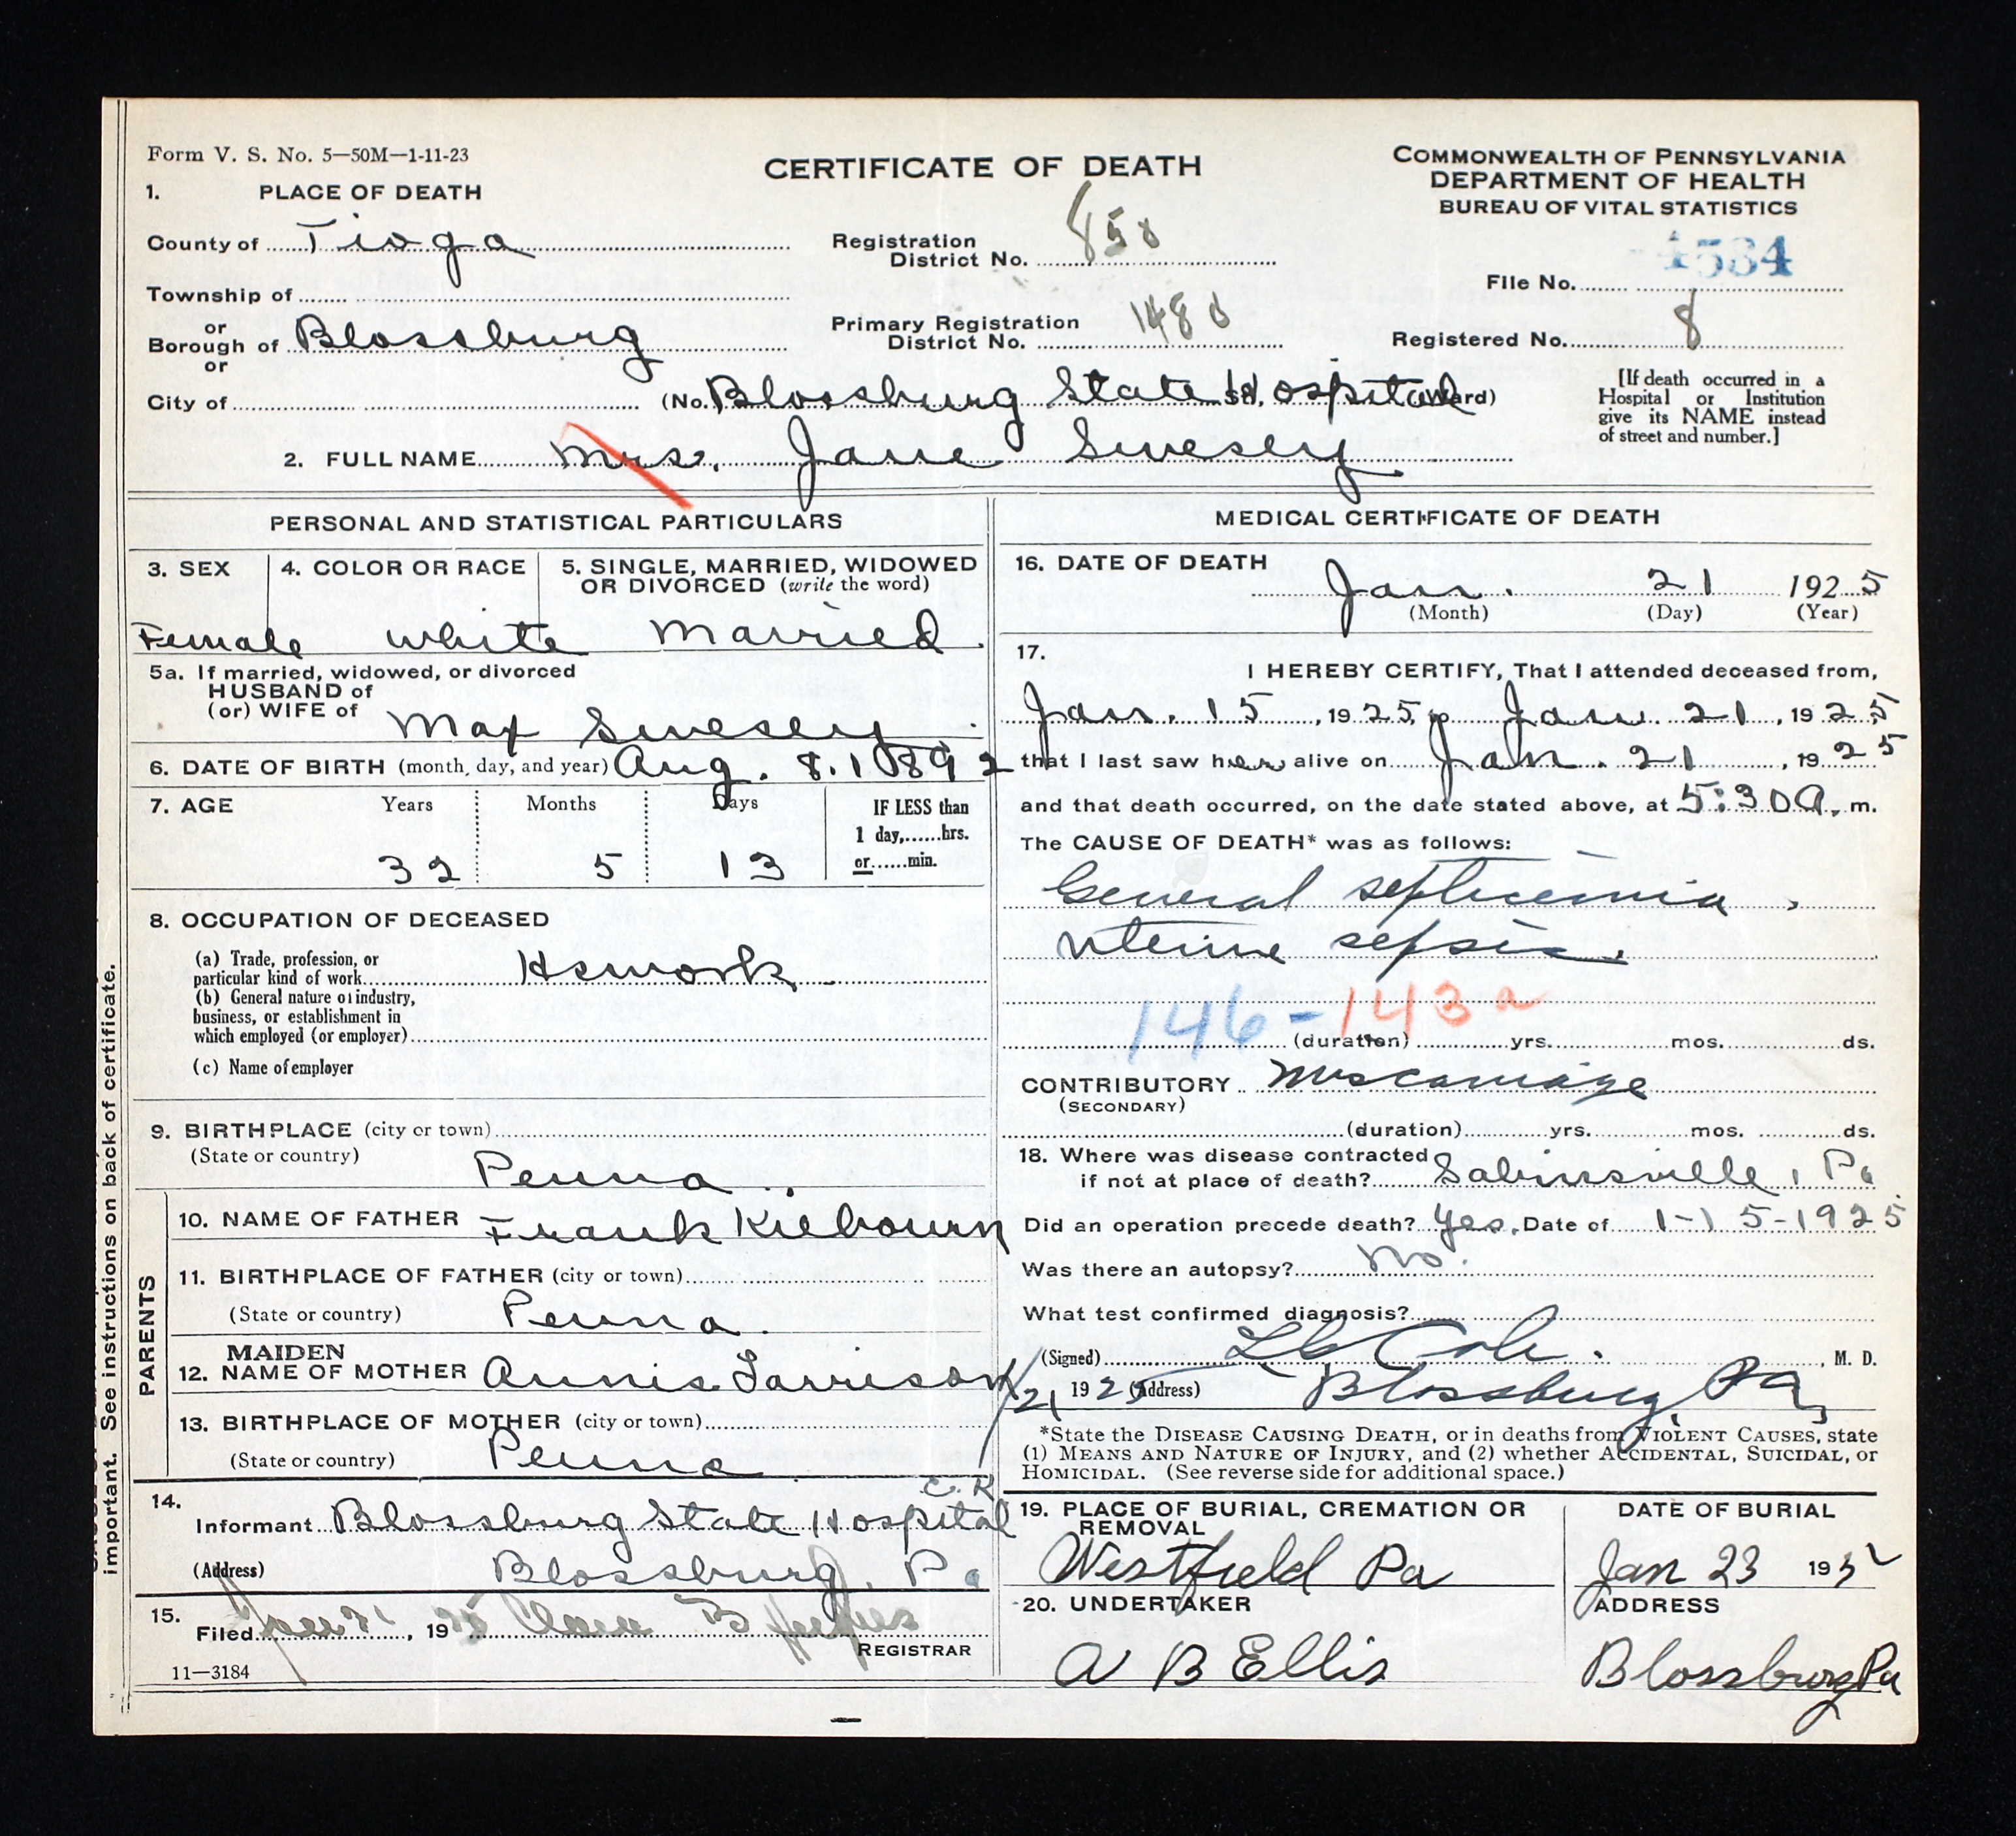 Form V. S. No. 5—50M—1-11-23
CERTIFICATE OF DEATH
COMMONWEALTH OF PENNSYLVANIA
DEPARTMENT OF HEALTH
BUREAU OF VITAL STATISTICS
1. PLACE OF DEATH
County of Tioga
Registration District No. 850
File No. 4534
Township of
or
Borough of Blossburg
or
Primary Registration District No. 1480
Registered No. 8
City of
(No. Blossburg State Hospital St. Ward)
[If death occurred in a Hospital or Institution give its NAME instead of street and number.]
2. FULL NAME Mrs. Jane Swesey
PERSONAL AND STATISTICAL PARTICULARS
3. SEX
4. COLOR OR RACE
5. SINGLE, MARRIED, WIDOWED OR DIVORCED (write the word)
Female white Married
5a. If married, widowed, or divorced
HUSBAND of
(or) WIFE of Max Swesey
6. DATE OF BIRTH (month, day, and year) Aug. 8. 1892
7. AGE Years Months Days IF LESS than
1 day,......hrs.
or......min.
32 5 13
8. OCCUPATION OF DECEASED
(a) Trade, profession, or
particular kind of work Hswork
(b) General nature of industry,
business, or establishment in
which employed (or employer)
(c) Name of employer
9. BIRTHPLACE (city or town)
(State or country) Penna.
PARENTS
10. NAME OF FATHER Frank Kilbourn
11. BIRTHPLACE OF FATHER (city or town)
(State or country) Penna.
12. MAIDEN NAME OF MOTHER Annis
13. BIRTHPLACE OF MOTHER (city or town)
(State or country) Penna
14. C. K
Informant Blossburg State Hospital
(Address) Blossburg, Pa
15.
Filed , 19
REGISTRAR
11—3184
MEDICAL CERTIFICATE OF DEATH
16. DATE OF DEATH
Jan. 21 1925
(Month) (Day) (Year)
17. I HEREBY CERTIFY, That I attended deceased from,
Jan. 15, 1925, to Jan. 21, 1925
that I last saw her alive on Jan. 21, 1925
and that death occurred, on the date stated above, at 5:30 A. m.
The CAUSE OF DEATH* was as follows:
General septicemia,
uterine sepsis.
146-143a
(duration) yrs. mos. ds.
CONTRIBUTORY Miscarriage
(SECONDARY)
(duration) yrs. mos. ds.
18. Where was disease contracted
if not at place of death? Sabinsville, Pa
Did an operation precede death? Yes. Date of 1-15-1925
Was there an autopsy? No.
What test confirmed diagnosis?
(Signed) Cole. , M. D.
1/21 1925 (Address) Blossburg, Pa,
*State the DISEASE CAUSING DEATH, or in deaths from VIOLENT CAUSES, state
(1) MEANS AND NATURE OF INJURY, and (2) whether ACCIDENTAL, SUICIDAL, or
HOMICIDAL. (See reverse side for additional space.)
19. PLACE OF BURIAL, CREMATION OR REMOVAL
DATE OF BURIAL
Westfield Pa
Jan 23 19
20. UNDERTAKER
ADDRESS
A B Ellis
Blossburg Pa
important. See instructions on back of certificate.